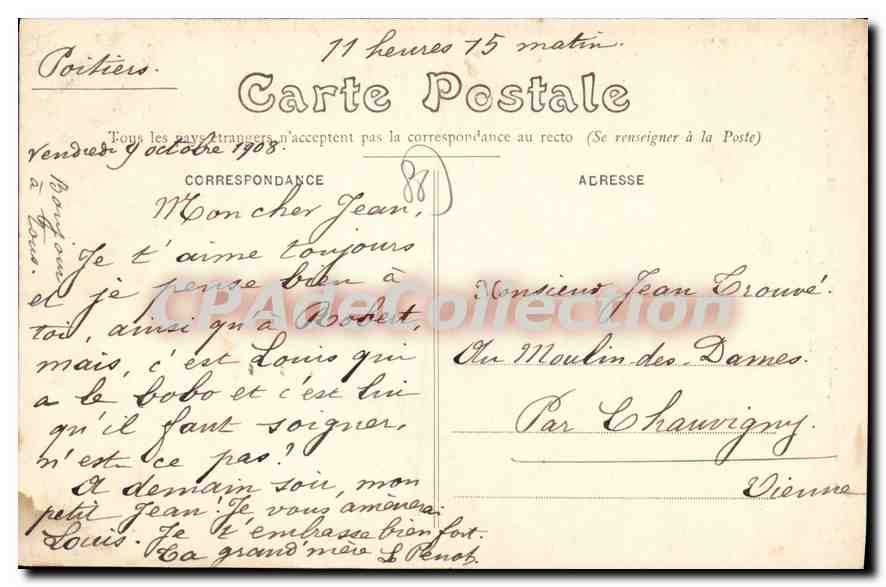 11 heures 15 matin.
Poitiers.
Carte Postale
Tous les pays étrangers n'acceptent pas la correspondance au recto (Se renseigner à la Poste)
Vendredi 9 octobre 1908.
CORRESPONDANCE
88
ADRESSE
Bonjour
à tous.
Mon cher Jean,
Je t'aime toujours
et je pense bien à
toi, ainsi qu'à Robert,
mais, c'est Louis qui
a le bobo et c'est lui
qu'il faut soigner,
n'est ce pas?
A demain soir, mon
petit Jean! Je vous amènerai
Louis. Je t'embrasse bien fort.
Ta grand'mère
Monsieur Jean Trouvé.
Au Moulin-des-Dames.
Par Chauvigny.
Vienne
CPAdeCollection.com